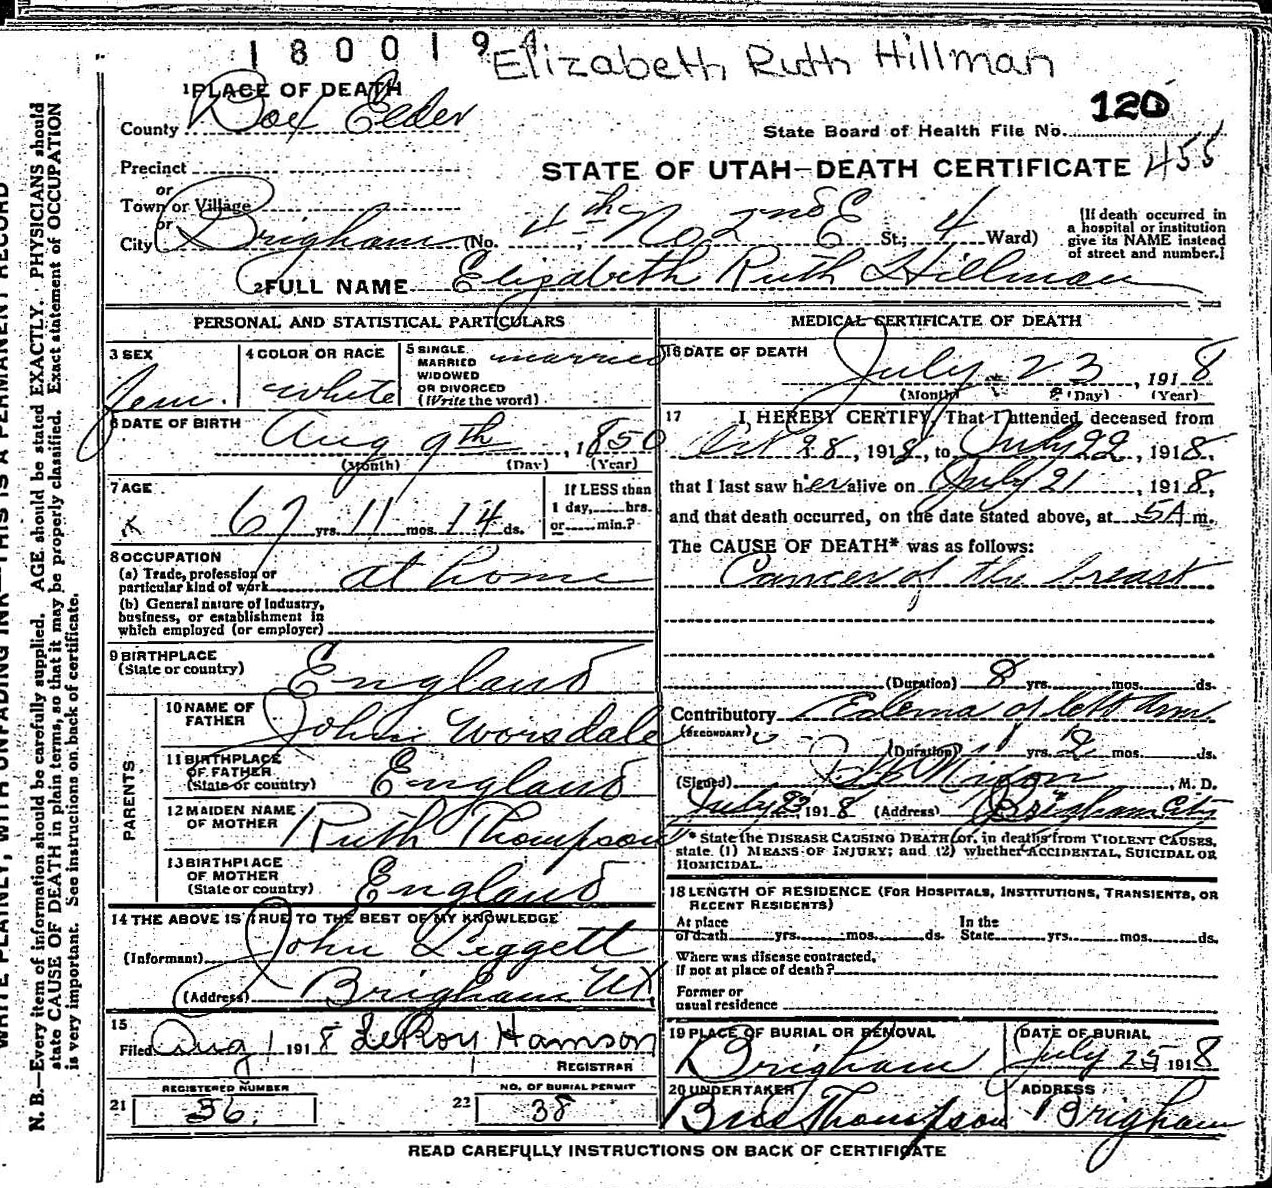 1800194
Elizabeth Ruth Hillman
120
1 PLACE OF DEATH
County Box Elder
State Board of Health File No.
Precinct
STATE OF UTAH—DEATH CERTIFICATE 455
or
Town or Village
or
City Brigham (No. 4th No 2nd E St.; 4 Ward)
[If death occurred in a hospital or institution give its NAME instead of street and number.]
2 FULL NAME Elizabeth Ruth Hillman
PERSONAL AND STATISTICAL PARTICULARS
3 SEX
Fem.
4 COLOR OR RACE
white
5 SINGLE
MARRIED
WIDOWED
OR DIVORCED
(Write the word)
married
6 DATE OF BIRTH
Aug 9th, 1850
(Month) (Day) (Year)
7 AGE
67 yrs. 11 mos. 14 ds.
If LESS than
1 day, hrs.
or min.?
8 OCCUPATION
(a) Trade, profession or
particular kind of work at home
(b) General nature of Industry,
business, or establishment in
which employed (or employer)
9 BIRTHPLACE
(State or country) England
PARENTS
10 NAME OF
FATHER John Worsdale
11 BIRTHPLACE
OF FATHER
(State or country) England
12 MAIDEN NAME
OF MOTHER Ruth Thompson
13 BIRTHPLACE
OF MOTHER
(State or country) England
14 THE ABOVE IS TRUE TO THE BEST OF MY KNOWLEDGE
(Informant) John Leggett
(Address) Brigham Ut
15
Filed Aug 1 1918 LeRoy Hamson
REGISTRAR
REGISTERED NUMBER
21 36
NO. OF BURIAL PERMIT
22 38
MEDICAL CERTIFICATE OF DEATH
16 DATE OF DEATH
July 23, 1918
(Month) (Day) (Year)
17 I HEREBY CERTIFY, That I attended deceased from
Oct 28, 1918, to July 22, 1918.
that I last saw her alive on July 21, 1918,
and that death occurred, on the date stated above, at 5A m.
The CAUSE OF DEATH* was as follows:
Cancer of the breast
(Duration) 8 yrs. mos. ds.
Contributory Edema of left Arm.
(SECONDARY)
(Duration) 1 yrs. 2 mos. ds.
(Signed) Nixon, M. D.
July 23 1918 (Address) Brigham City
* State the DISEASE CAUSING DEATH or, in deaths from VIOLENT CAUSES,
state. (1) MEANS OF INJURY; and (2) whether ACCIDENTAL, SUICIDAL OR
HOMICIDAL.
18 LENGTH OF RESIDENCE (FOR HOSPITALS, INSTITUTIONS, TRANSIENTS, OR
RECENT RESIDENTS)
At place
of death yrs. mos. ds.
In the
State yrs. mos. ds.
Where was disease contracted,
if not at place of death?
Former or
usual residence
19 PLACE OF BURIAL OR REMOVAL
Brigham
DATE OF BURIAL
July 25 1918
20 UNDERTAKER
Thompson
ADDRESS
Brigham
READ CAREFULLY INSTRUCTIONS ON BACK OF CERTIFICATE
WRITE PLAINLY, WITH UNFADING INK—THIS IS A PERMANENT RECORD
N. B.—Every item of information should be carefully supplied. AGE should be stated EXACTLY. PHYSICIANS should
state CAUSE OF DEATH in plain terms, so that it may be properly classified. Exact statement of OCCUPATION
is very important. See instructions on back of certificate.